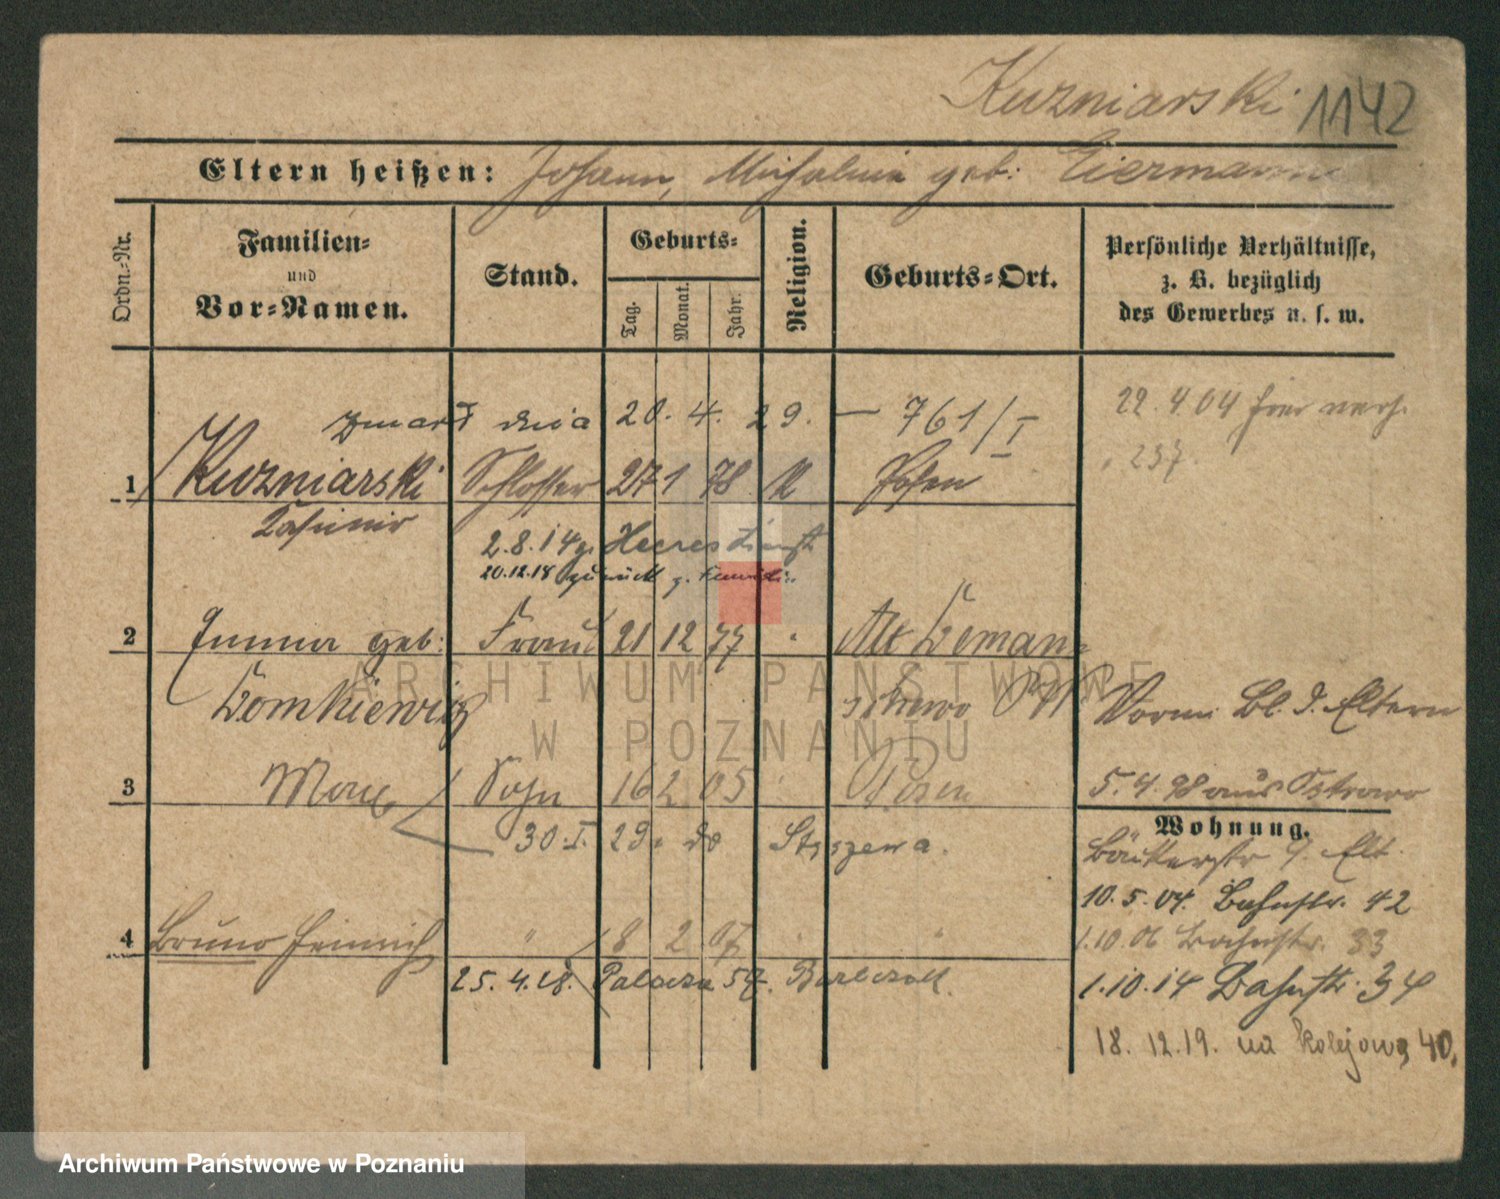 Kuzniarski 1142
Eltern heißen: Johann, Michalina geb: Eiermann
Ordn.-Nr.
Familien-
und
Vor-Namen.
Stand.
Geburts-
Tag.
Monat.
Jahr.
Religion.
Geburts-Ort.
Persönliche Verhältnisse,
z. B. bezüglich
des Gewerbes u. s. w.
zmarł dnia 20. 4. 29. — 761/I
22.4.04 hier verh.
237.
1 Kuzniarski Schlosser 27 1 78 K Posen
Casimir
2.8.14 Heeresdienst
20.12.18 zurück z. Familie
2 Emma geb: Frau 21 12 77 Alt
Tomkiewicz
Vorm. Bl. d. Eltern
3 Max Sohn 16 2 05 Posen
5.4.98 aus Ostrowo
30.I. 29. do Stęszewa.
Wohnung.
Bäckerstr Elt.
10.5.04. Bahnstr. 42
4 Bruno Heinrich " 8 2 07 "
1.10.06 Bahnstr. 33
25.4.28. Palacza 57.
1.10.14 Bahnstr. 34
18.12.19. na Kolejową 40.
ARCHIWUM PAŃSTWOWE
W POZNANIU
Archiwum Państwowe w Poznaniu